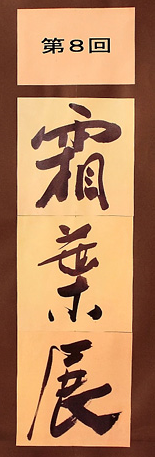 第8回
霜葉展